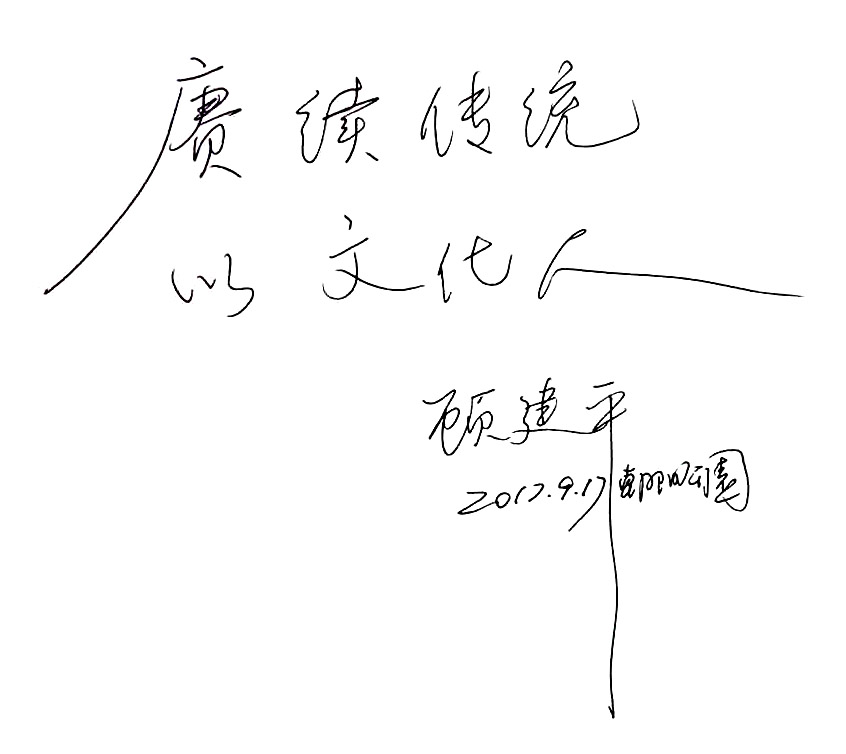 赓续传统
以文化人
顾建平
2017.9.17 朝阳公園